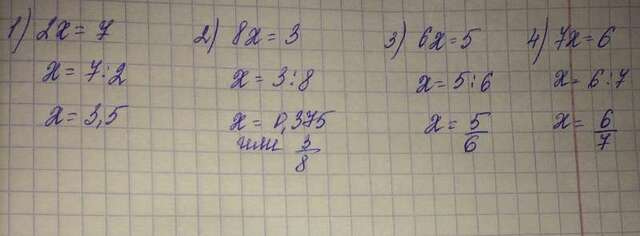 1) 2x = 7
x = 7:2
x = 3,5
2) 8x = 3
x = 3:8
x = 0,375
или 3/8
3) 6x = 5
x = 5:6
x = 5/6
4) 7x = 6
x = 6:7
x = 6/7